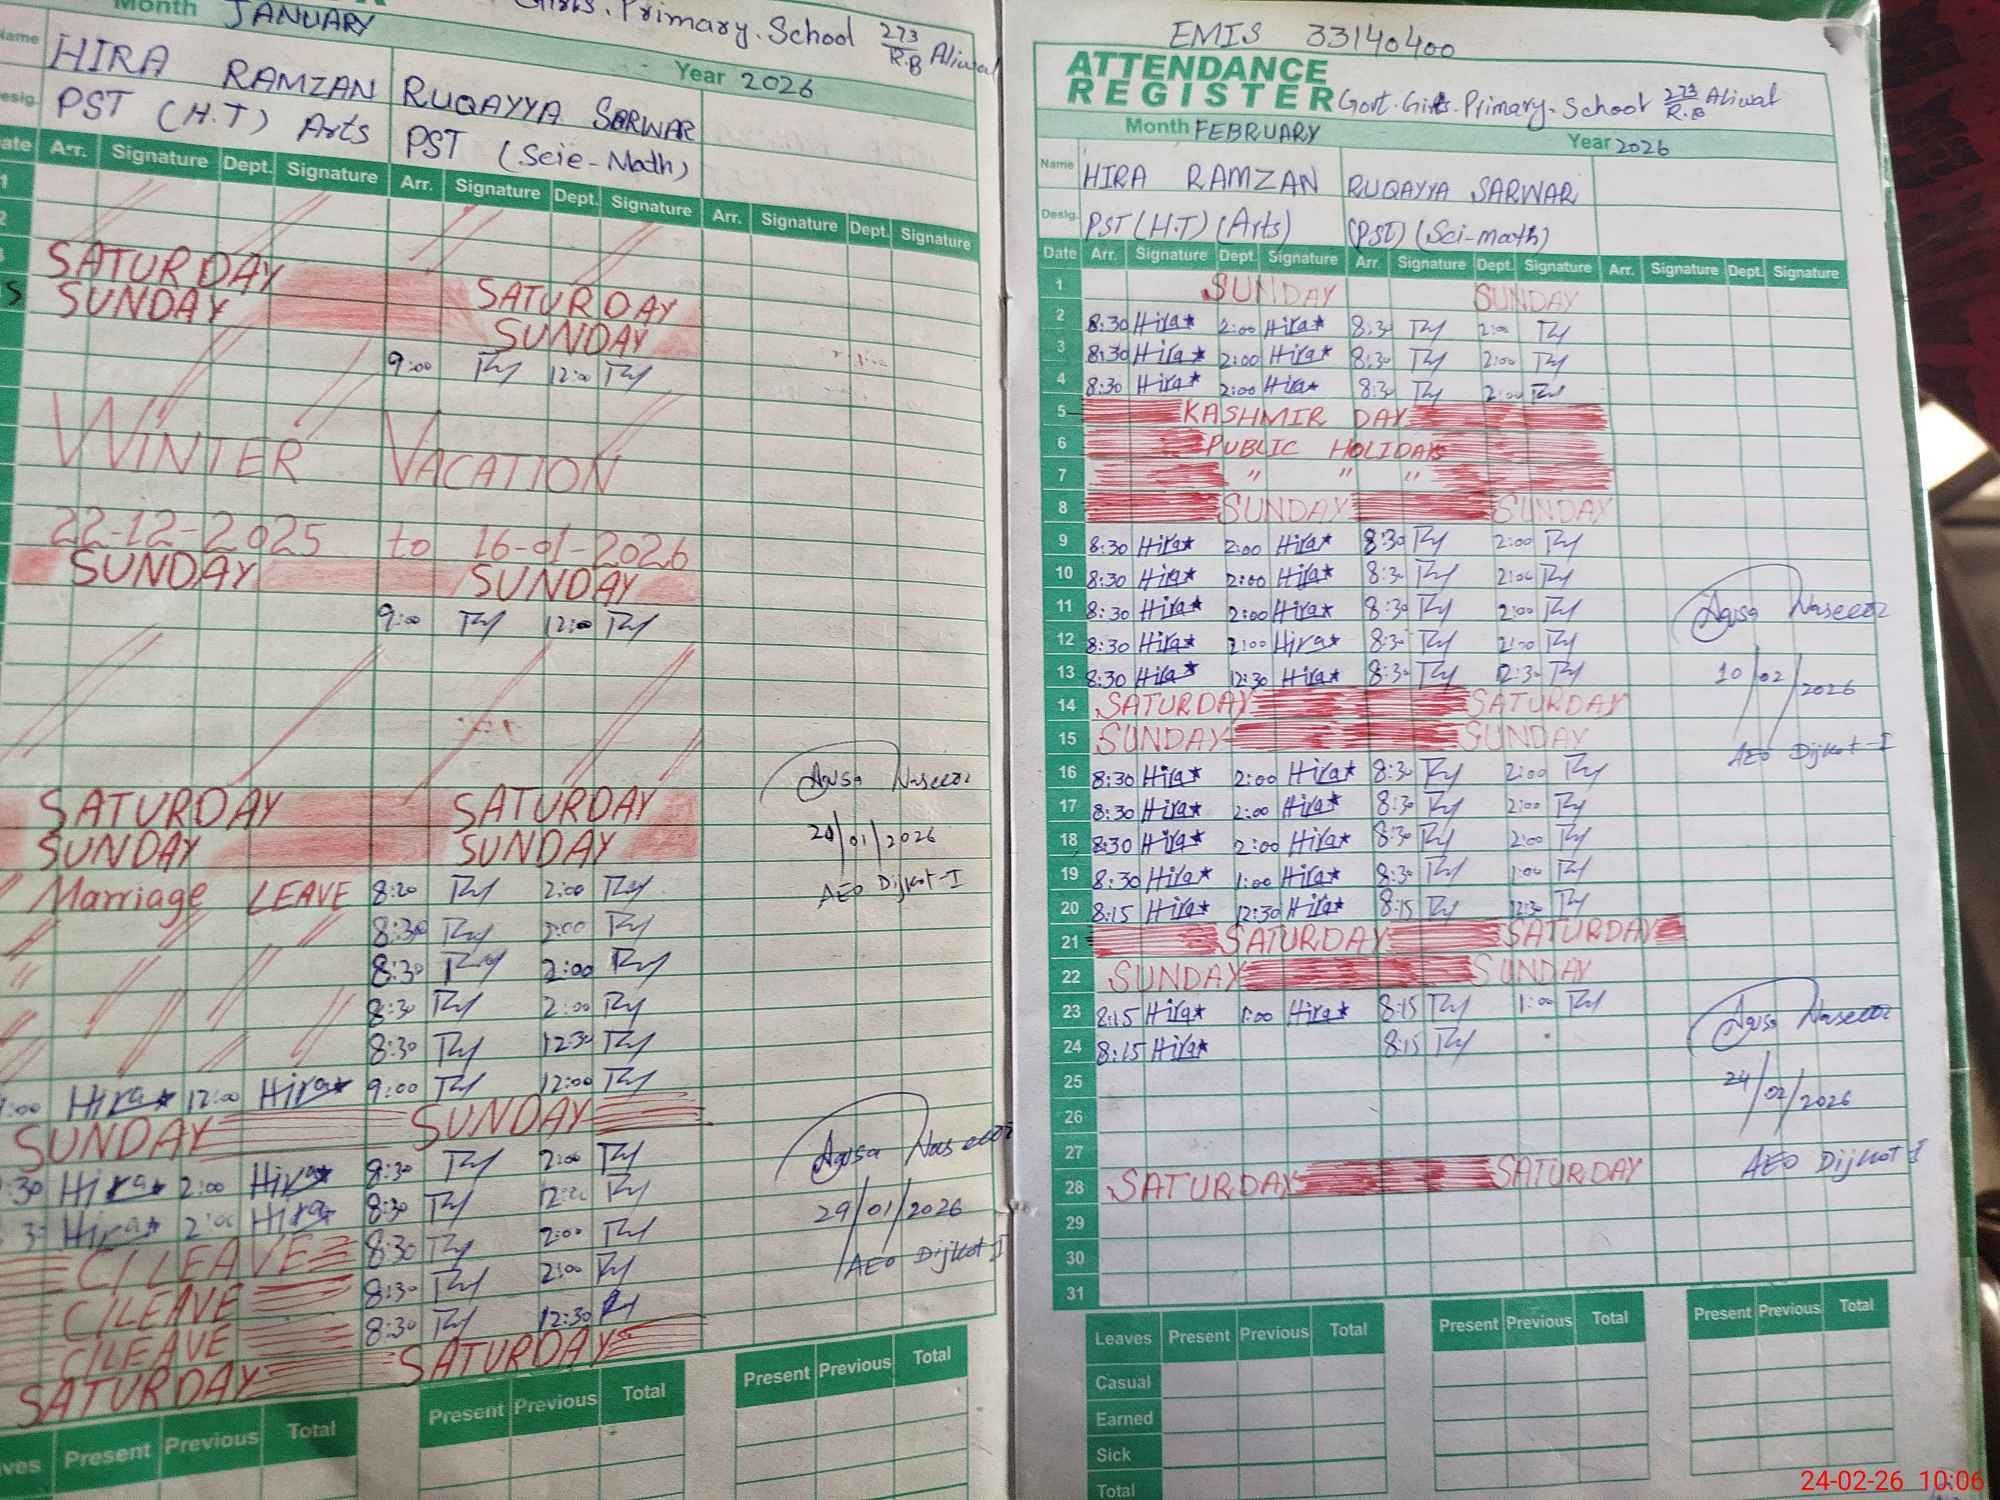 Month JANUARY
Girls. Primary. School 273/R.B Aliwal
Year 2026
Name HIRA RAMZAN RUQAYYA SARWAR
Desig. PST (H.T) Arts PST (Scie-Math)
Date Arr. Signature Dept. Signature Arr. Signature Dept. Signature Arr. Signature Dept. Signature
1
2
SATURDAY SATURDAY
SUNDAY SUNDAY
9:00 12:00
WINTER VACATION
22-12-2025 to 16-01-2026
SUNDAY SUNDAY
9:00 12:00
SATURDAY SATURDAY
SUNDAY SUNDAY
Marriage LEAVE 8:20 2:00
8:30 2:00
8:30 2:00
8:30 2:00
8:30 12:30
:00 Hira 12:00 Hira 9:00 12:00
SUNDAY SUNDAY
:30 Hira 2:00 Hira 8:30 2:00
Hira 2:00 Hira 8:30
C/LEAVE 8:30 2:00
C/LEAVE 8:30 2:00
C/LEAVE 8:30 12:30
SATURDAY SATURDAY
Naseer
20/01/2026
AEO Dijkot-I
Naseer
29/01/2026
AEO Dijkot I
Present Previous Total Present Previous Total Present Previous Total
EMIS 33140400
ATTENDANCE
REGISTER Govt. Girls. Primary. School 273/R.B Aliwal
Month FEBRUARY Year 2026
Name HIRA RAMZAN RUQAYYA SARWAR
Desig. PST (H.T) (Arts) (PST) (Sci-math)
Date Arr. Signature Dept. Signature Arr. Signature Dept. Signature Arr. Signature Dept. Signature
1 SUNDAY SUNDAY
2 8:30 Hira 2:00 Hira 8:30 2:00
3 8:30 Hira 2:00 Hira 8:30 2:00
4 8:30 Hira 2:00 Hira 8:30 2:00
5 KASHMIR DAY
6 PUBLIC HOLIDAY
7 " " "
8 SUNDAY SUNDAY
9 8:30 Hira 2:00 Hira 8:30 2:00
10 8:30 Hira 2:00 Hira 8:30 2:00
11 8:30 Hira 2:00 Hira 8:30 2:00
12 8:30 Hira 2:00 Hira 8:30 2:00
13 8:30 Hira 12:30 Hira 8:30 12:30
14 SATURDAY SATURDAY
15 SUNDAY SUNDAY
16 8:30 Hira 2:00 Hira 8:30 2:00
17 8:30 Hira 2:00 Hira 8:30 2:00
18 8:30 Hira 2:00 Hira 8:30 2:00
19 8:30 Hira 1:00 Hira 8:30 1:00
20 8:15 Hira 12:30 Hira 8:15 12:30
21 SATURDAY SATURDAY
22 SUNDAY SUNDAY
23 8:15 Hira 1:00 Hira 8:15 1:00
24 8:15 Hira 8:15
25
26
27
28 SATURDAY SATURDAY
29
30
31
Naseer
10/02/2026
AEO Dijkot-I
Naseer
24/02/2026
AEO Dijkot I
Leaves Present Previous Total Present Previous Total Present Previous Total
Casual
Earned
Sick
Total
24-02-26 10:06